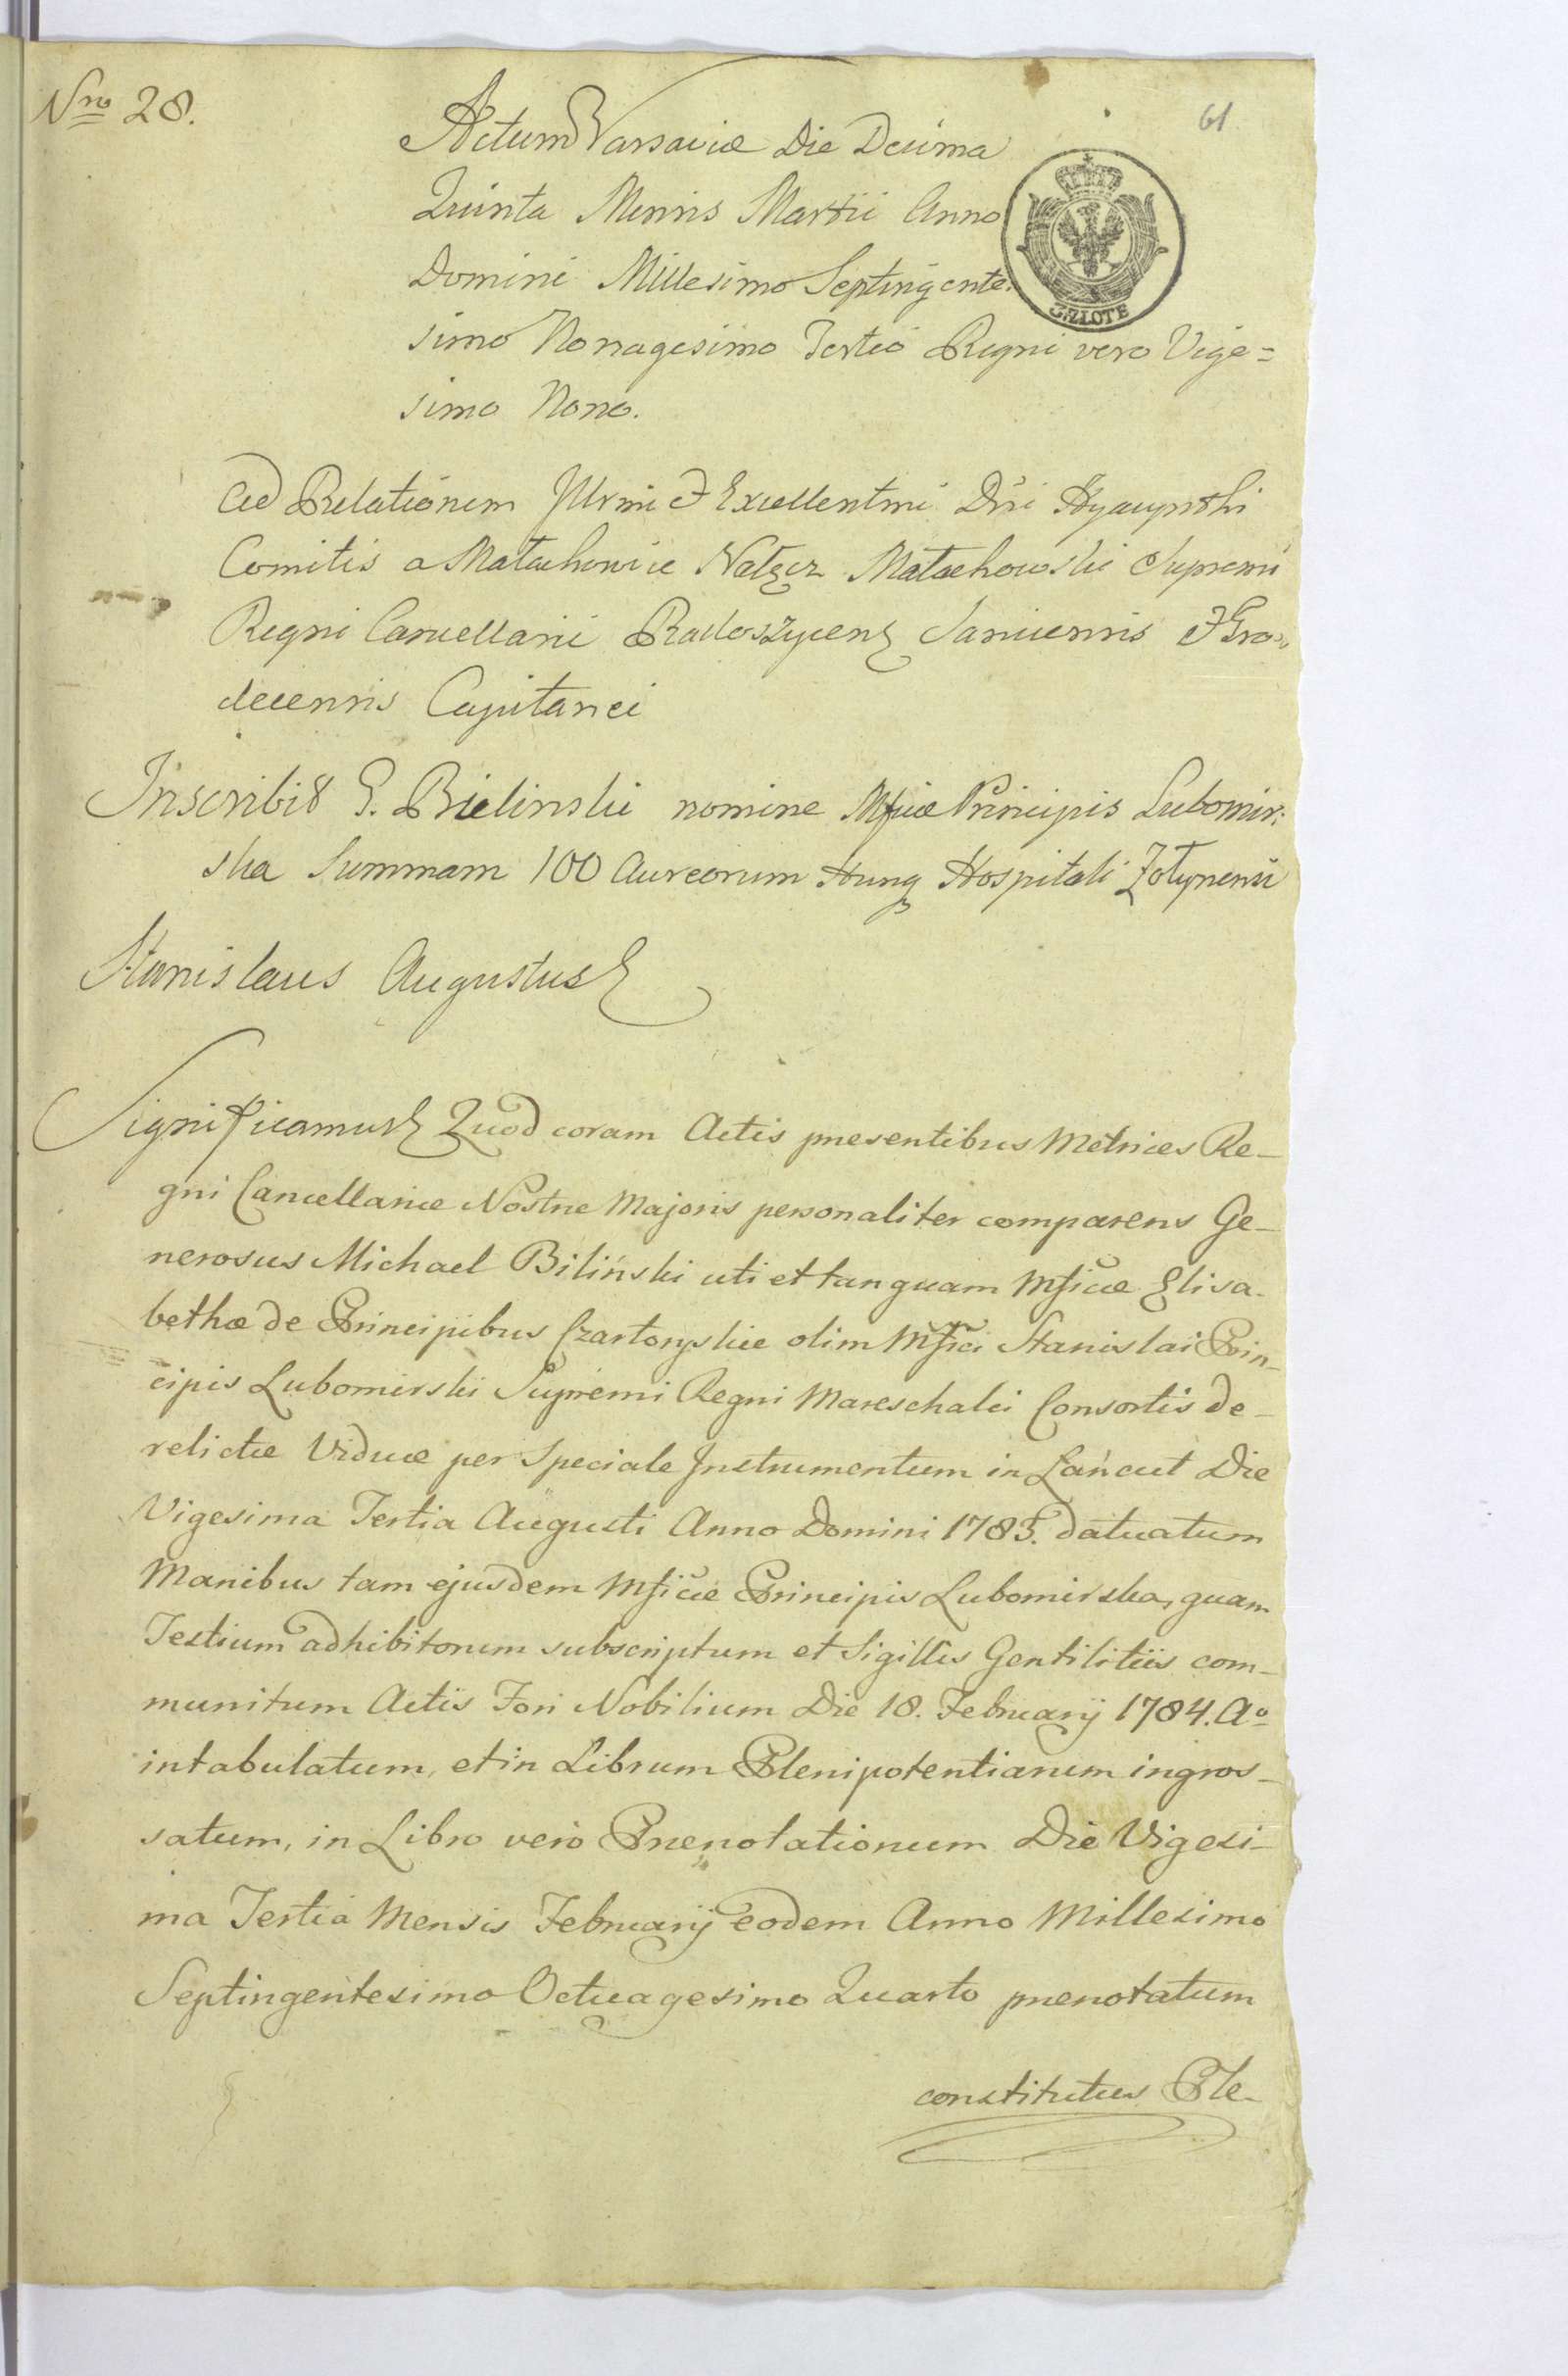 Nro 28.
61
Actum Varsaviæ Die Decima
Quinta Mensis Martii Anno
Domini Millesimo Septingente-
simo Nonagesimo Tertio Regni vero Vige=
simo Nono.
3. ZŁOTE
Ad Relationem Illrmi & Excellentmi Dni Hyacynthi
Comitis a Małachowice Nałęcz Małachowski Supremi
Regni Cancellarii Radoszycen Sanicensis & Gro-
decensis Capitanei
Inscribit G. Bielinski nomine Mficæ Principis Lubomir:
ska Summam 100 Aureorum Hung Hospitali Żołynensi
Stanislaus Augustus
Significamus Quod coram Actis præsentibus Metrices Re-
gni Cancellariæ Nostræ Majoris personaliter comparens Ge-
nerosus Michael Biliński uti et tanquam Mficæ Elisa-
bethæ de Principibus Czartoryskie olim Mfici Stanislai Prin-
cipis Lubomirski Supremi Regni Mareschalci Consortis de-
relictæ Viduæ per Speciale Instrumentum in Łańcut Die
Vigesima Tertia Augusti Anno Domini 1783. datuatum
Manibus tam ejusdem Mficæ Principis Lubomirska, quam
Testium adhibitorum subscriptum et Sigillis Gentilitiis com-
munitum Actis Fori Nobilium Die 18. Februarij 1784. Ao
intabulatum, et in Librum Plenipotentiarum ingros-
satum, in Libro vero Prænotationum Die Vigesi-
ma Tertia Mensis Februarij eodem Anno Millesimo
Septingentesimo Octuagesimo Quarto prænotatum
constitutus Ple-